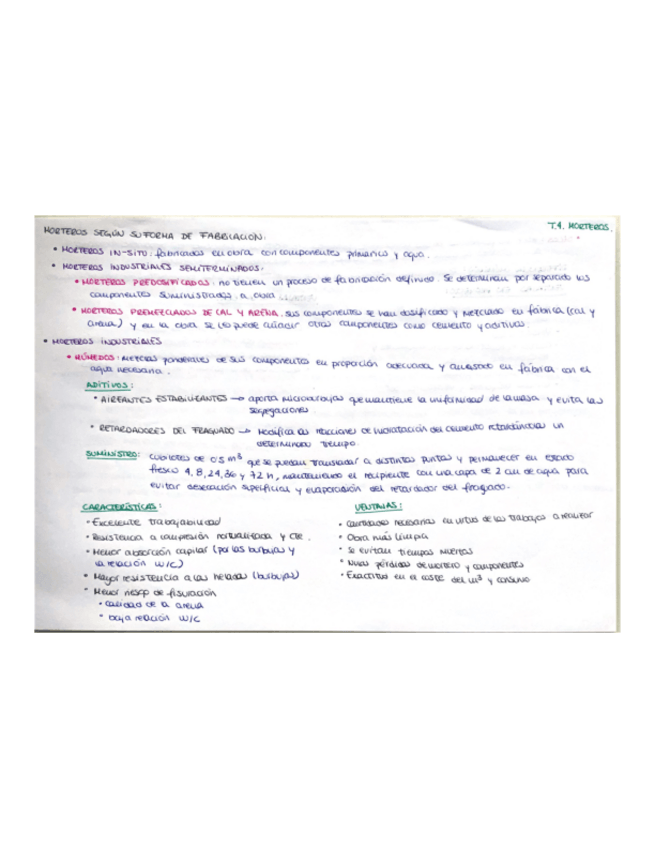 T.4. MORTEROS.
MORTEROS SEGÚN SU FORMA DE FABRICACIÓN:
• MORTEROS IN-SITU: fabricados en obra con componentes primarios y agua.
• MORTEROS INDUSTRIALES SEMITERMINADOS:
• MORTEROS PREDOSIFICADOS: no tienen un proceso de fabricación definido. Se determinan por separado los
componentes suministrados a obra
• MORTEROS PREMEZCLADOS DE CAL Y ARENA. sus componentes se han dosificado y mezclado en fábrica (cal y
arena) y en la obra se les puede añadir otros componentes como cemento y aditivos.
• MORTEROS INDUSTRIALES
• HÚMEDOS: mezclas ponderales de sus componentes en proporción adecuada y amasado en fábrica con el
agua necesaria.
ADITIVOS:
• AIREANTES ESTABILIZANTES → aporta microburbujas que mantiene la uniformidad de la masa y evita las
segregaciones
• RETARDADORES DEL FRAGUADO → Modifica las reacciones de hidratación del cemento retardándolas un
determinado tiempo.
SUMINISTRO: cubilotes de 0.5 m³ que se puedan transladar a distintos puntos y permanecer en estado
fresco 4, 8, 24, 36 y 72 h, manteniendo el recipiente con una capa de 2 cm de agua para
evitar desecación superficial y evaporación del retardador del fraguado.
CARACTERÍSTICAS:
• Excelente trabajabilidad
• Resistencia a compresión normalizada y cte.
• Menor absorción capilar (por las burbujas y
la relación W/C)
• Mayor resistencia a las heladas (burbujas)
• Menor riesgo de fisuración
• calidad de la arena
• baja relación W/C
VENTAJAS:
• cantidades necesarias en virtud de los trabajos a realizar
• Obra más limpia
• Se evitan tiempos muertos
• Nulas pérdidas de mortero y componentes
• Exactitud en el coste del m³ y consumo